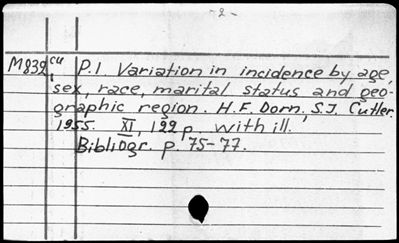 -2-
M832 cu P.1. Variation in incidence by age,
sex, race, marital status and geo-
graphic region. H.F. Dorn, S.J. Cutler.
1955. XI, 122 p. with ill.
Bibliogr. p. 75-77.